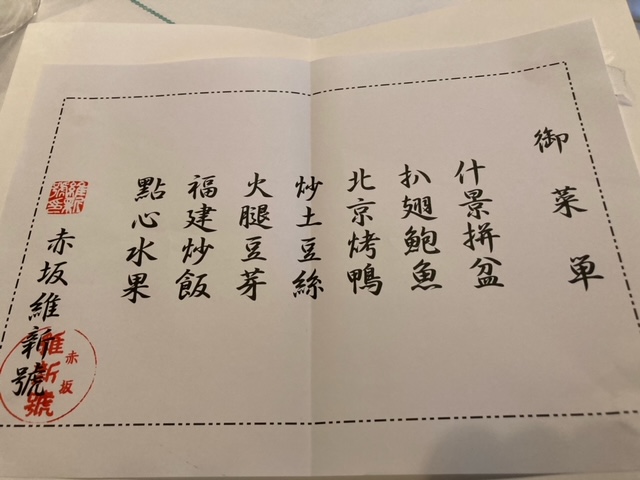 御菜単
什景拼盆
扒翅鮑魚
北京烤鴨
炒土豆絲
火腿豆芽
福建炒飯
點心水果
維新
號
赤坂維新號
赤坂
維新號